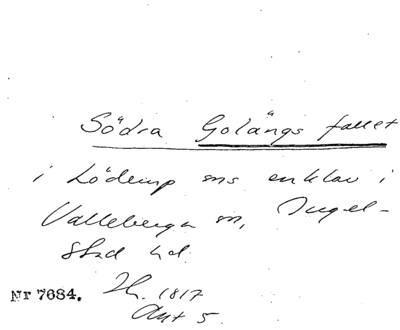 Södra Golängs fallet
i Löderup sns enklav i
Valleberga sn, Ingel-
stad hd.
Nr 7684. Lh. 1817
Akt 5